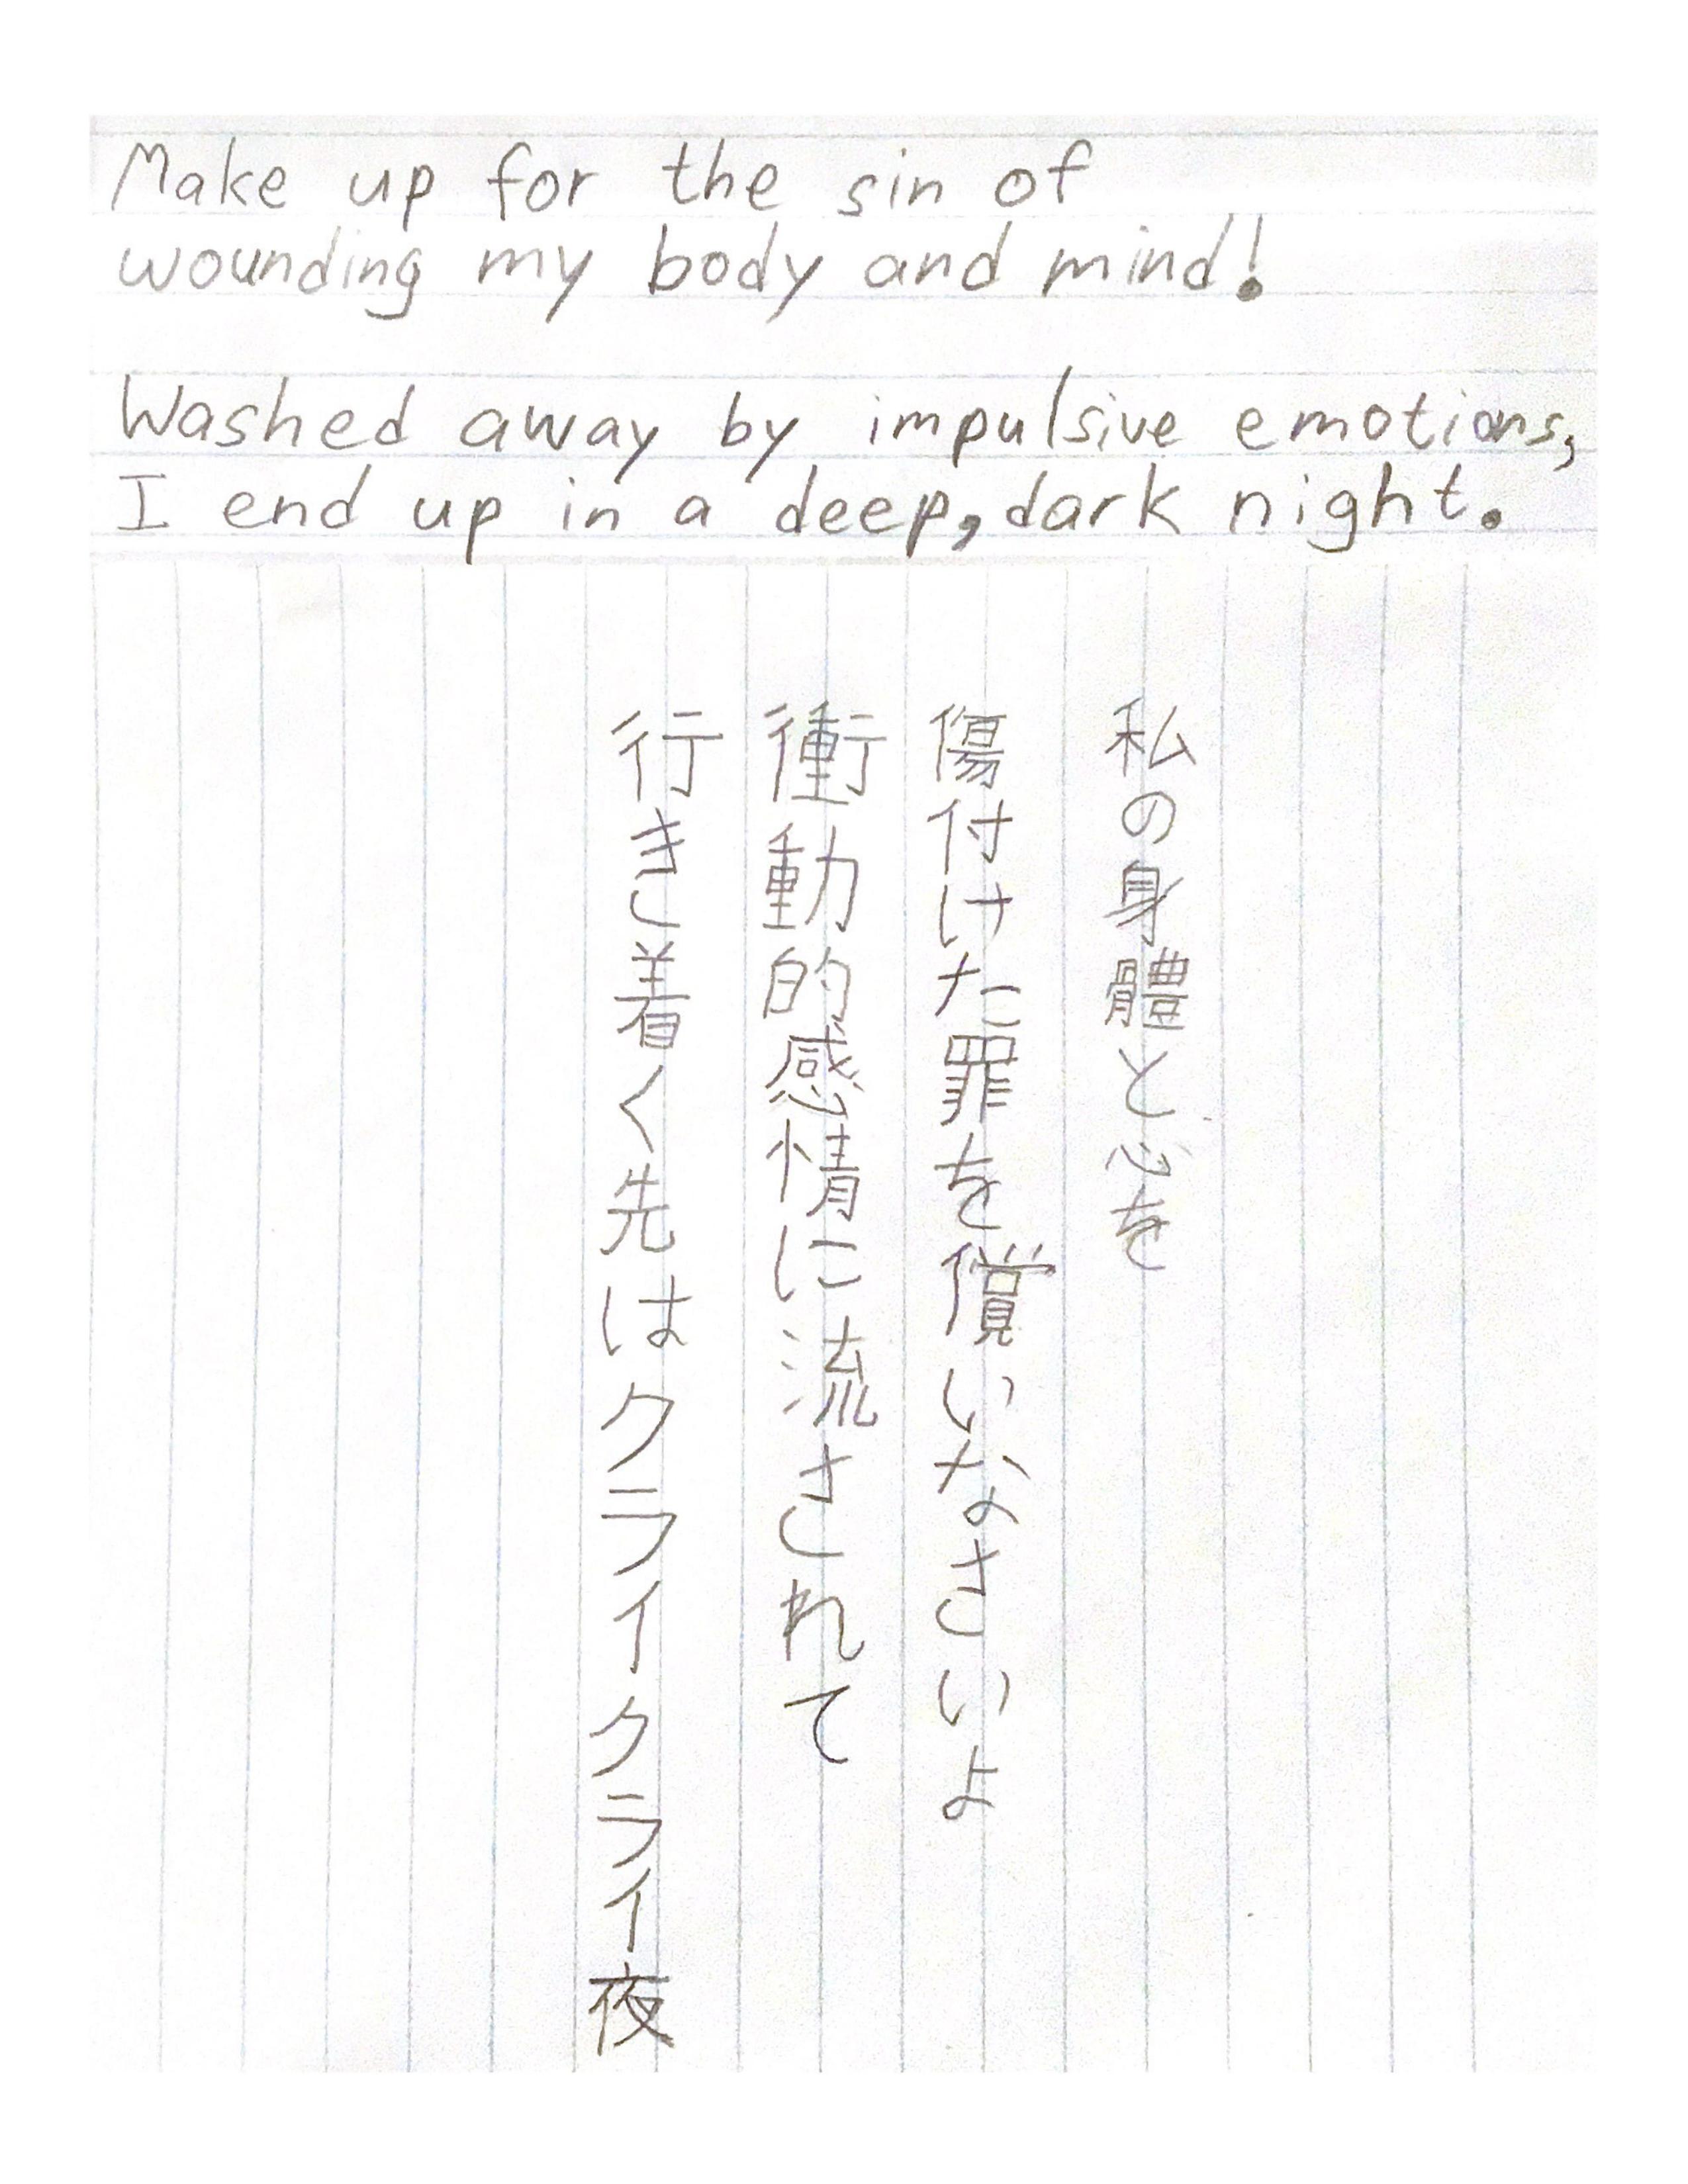 Make up for the sin of
wounding my body and mind!
Washed away by impulsive emotions,
I end up in a deep, dark night.
私の身體と心を
傷付けた罪を償いなさいよ
衝動的感情に流されて
行き着く先はクライクライ夜